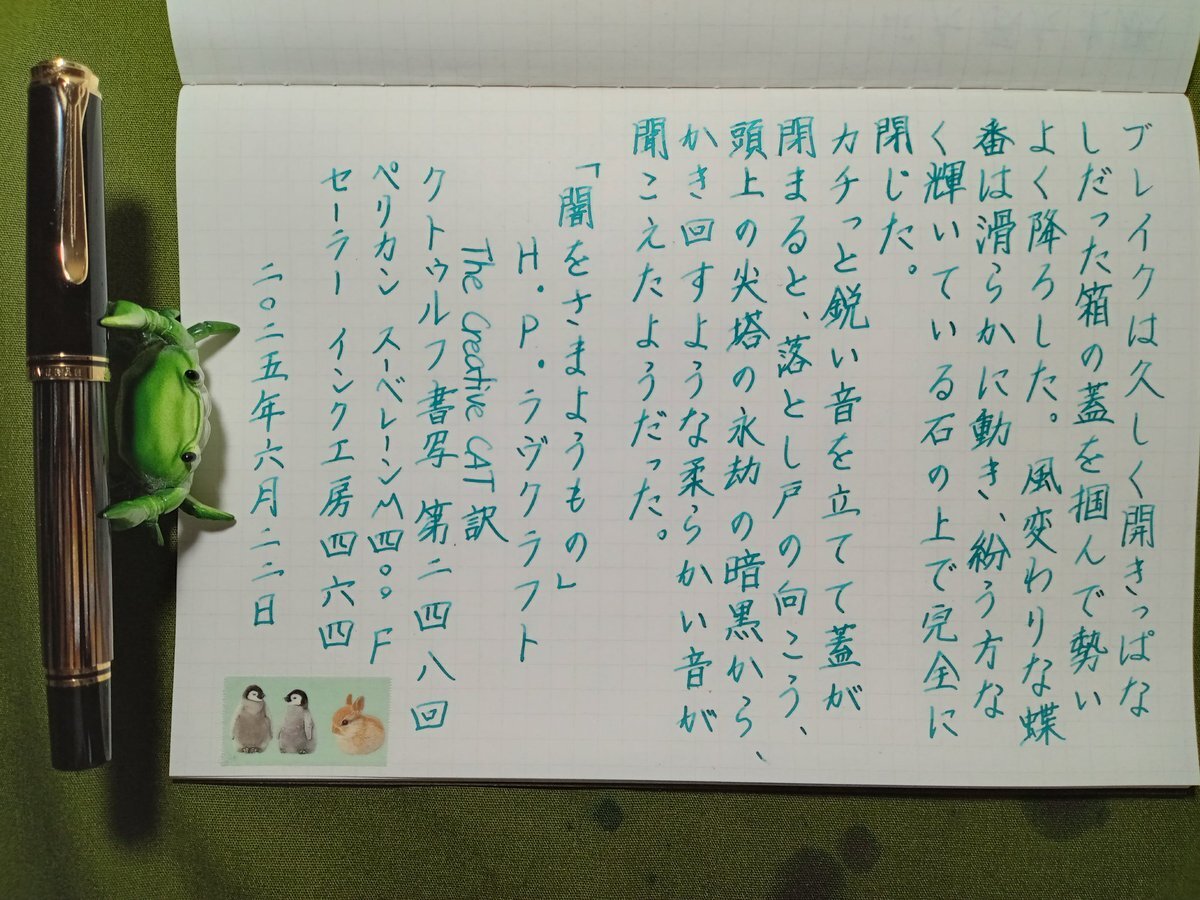 ブレイクは久しく開きっぱな
しだった箱の蓋を掴んで勢い
よく降ろした。風変わりな蝶
番は滑らかに動き、紛う方な
く輝いている石の上で完全に
閉じた。
カチっと鋭い音を立てて蓋が
閉まると、落とし戸の向こう、
頭上の尖塔の永劫の暗黒から、
かき回すような柔らかい音が
聞こえたようだった。
「闇をさまようもの」
H・P・ラヴクラフト
The Creative CAT 訳
クトゥルフ書写 第二四八回
ペリカン スーベレーンM四〇〇 F
セーラー インク工房 四六四
二〇二五年六月二二日